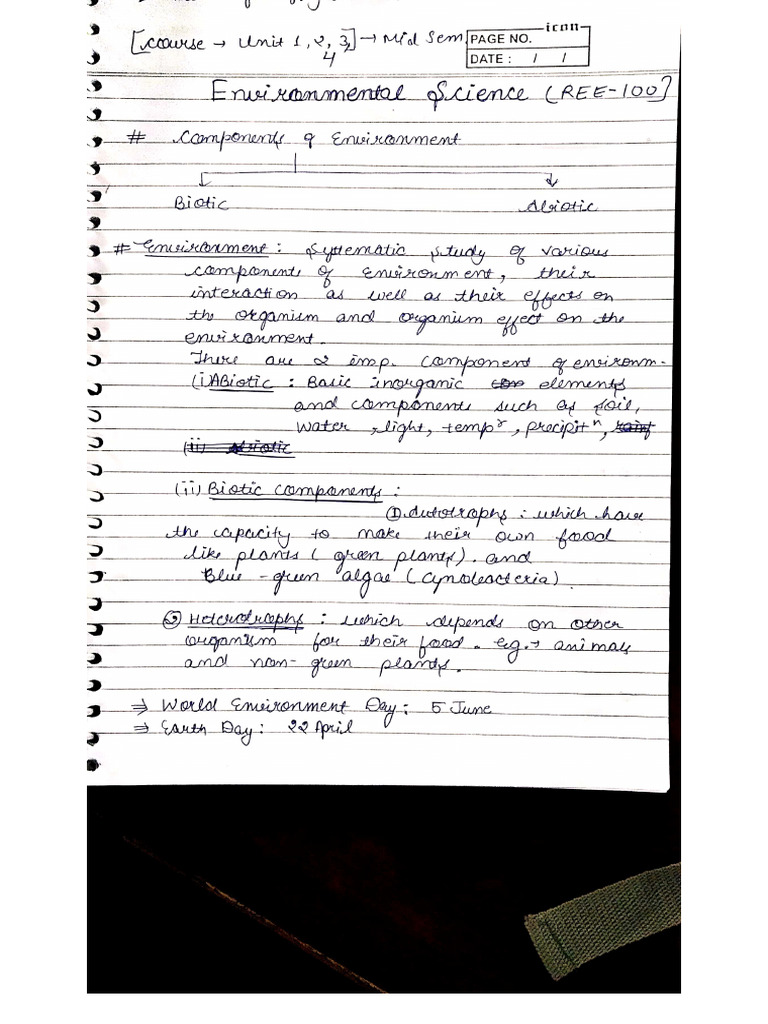 [course → Unit 1, 2, 3, → Mid Sem.
4
icon
PAGE NO.
DATE : / /
Environmental Science (REE-100]
# Components of Environment
Biotic Abiotic
# Environment : Systematic study of various
components of environment, their
interaction as well as their effects on
the organism and organism effect on the
environment.
There are 2 imp. component of environm-
(i) ABiotic : Basic inorganic elements
and components such as soil,
water, light, tempr, precipitn,
(ii) Biotic components :
① Autotrophs : which have
the capacity to make their own food
like plants ( green plants). and
Blue-green algae (Cynobacteria).
② Heterotrophs : which depends on other
organism for their food. eg.→ animals
and non-green plants.
⇒ World Environment Day : 5 June
⇒ Earth Day : 22 April